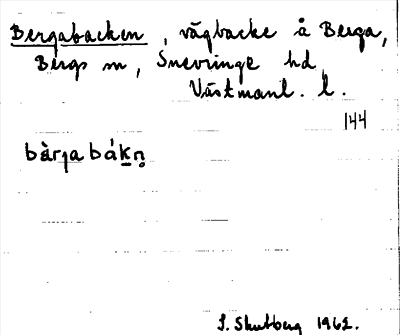 Bergabacken, vägbacke å Berga,
Bergs sn, Snevringe hd
Västmanl. l.
144
bàrjabákn̥
1962.